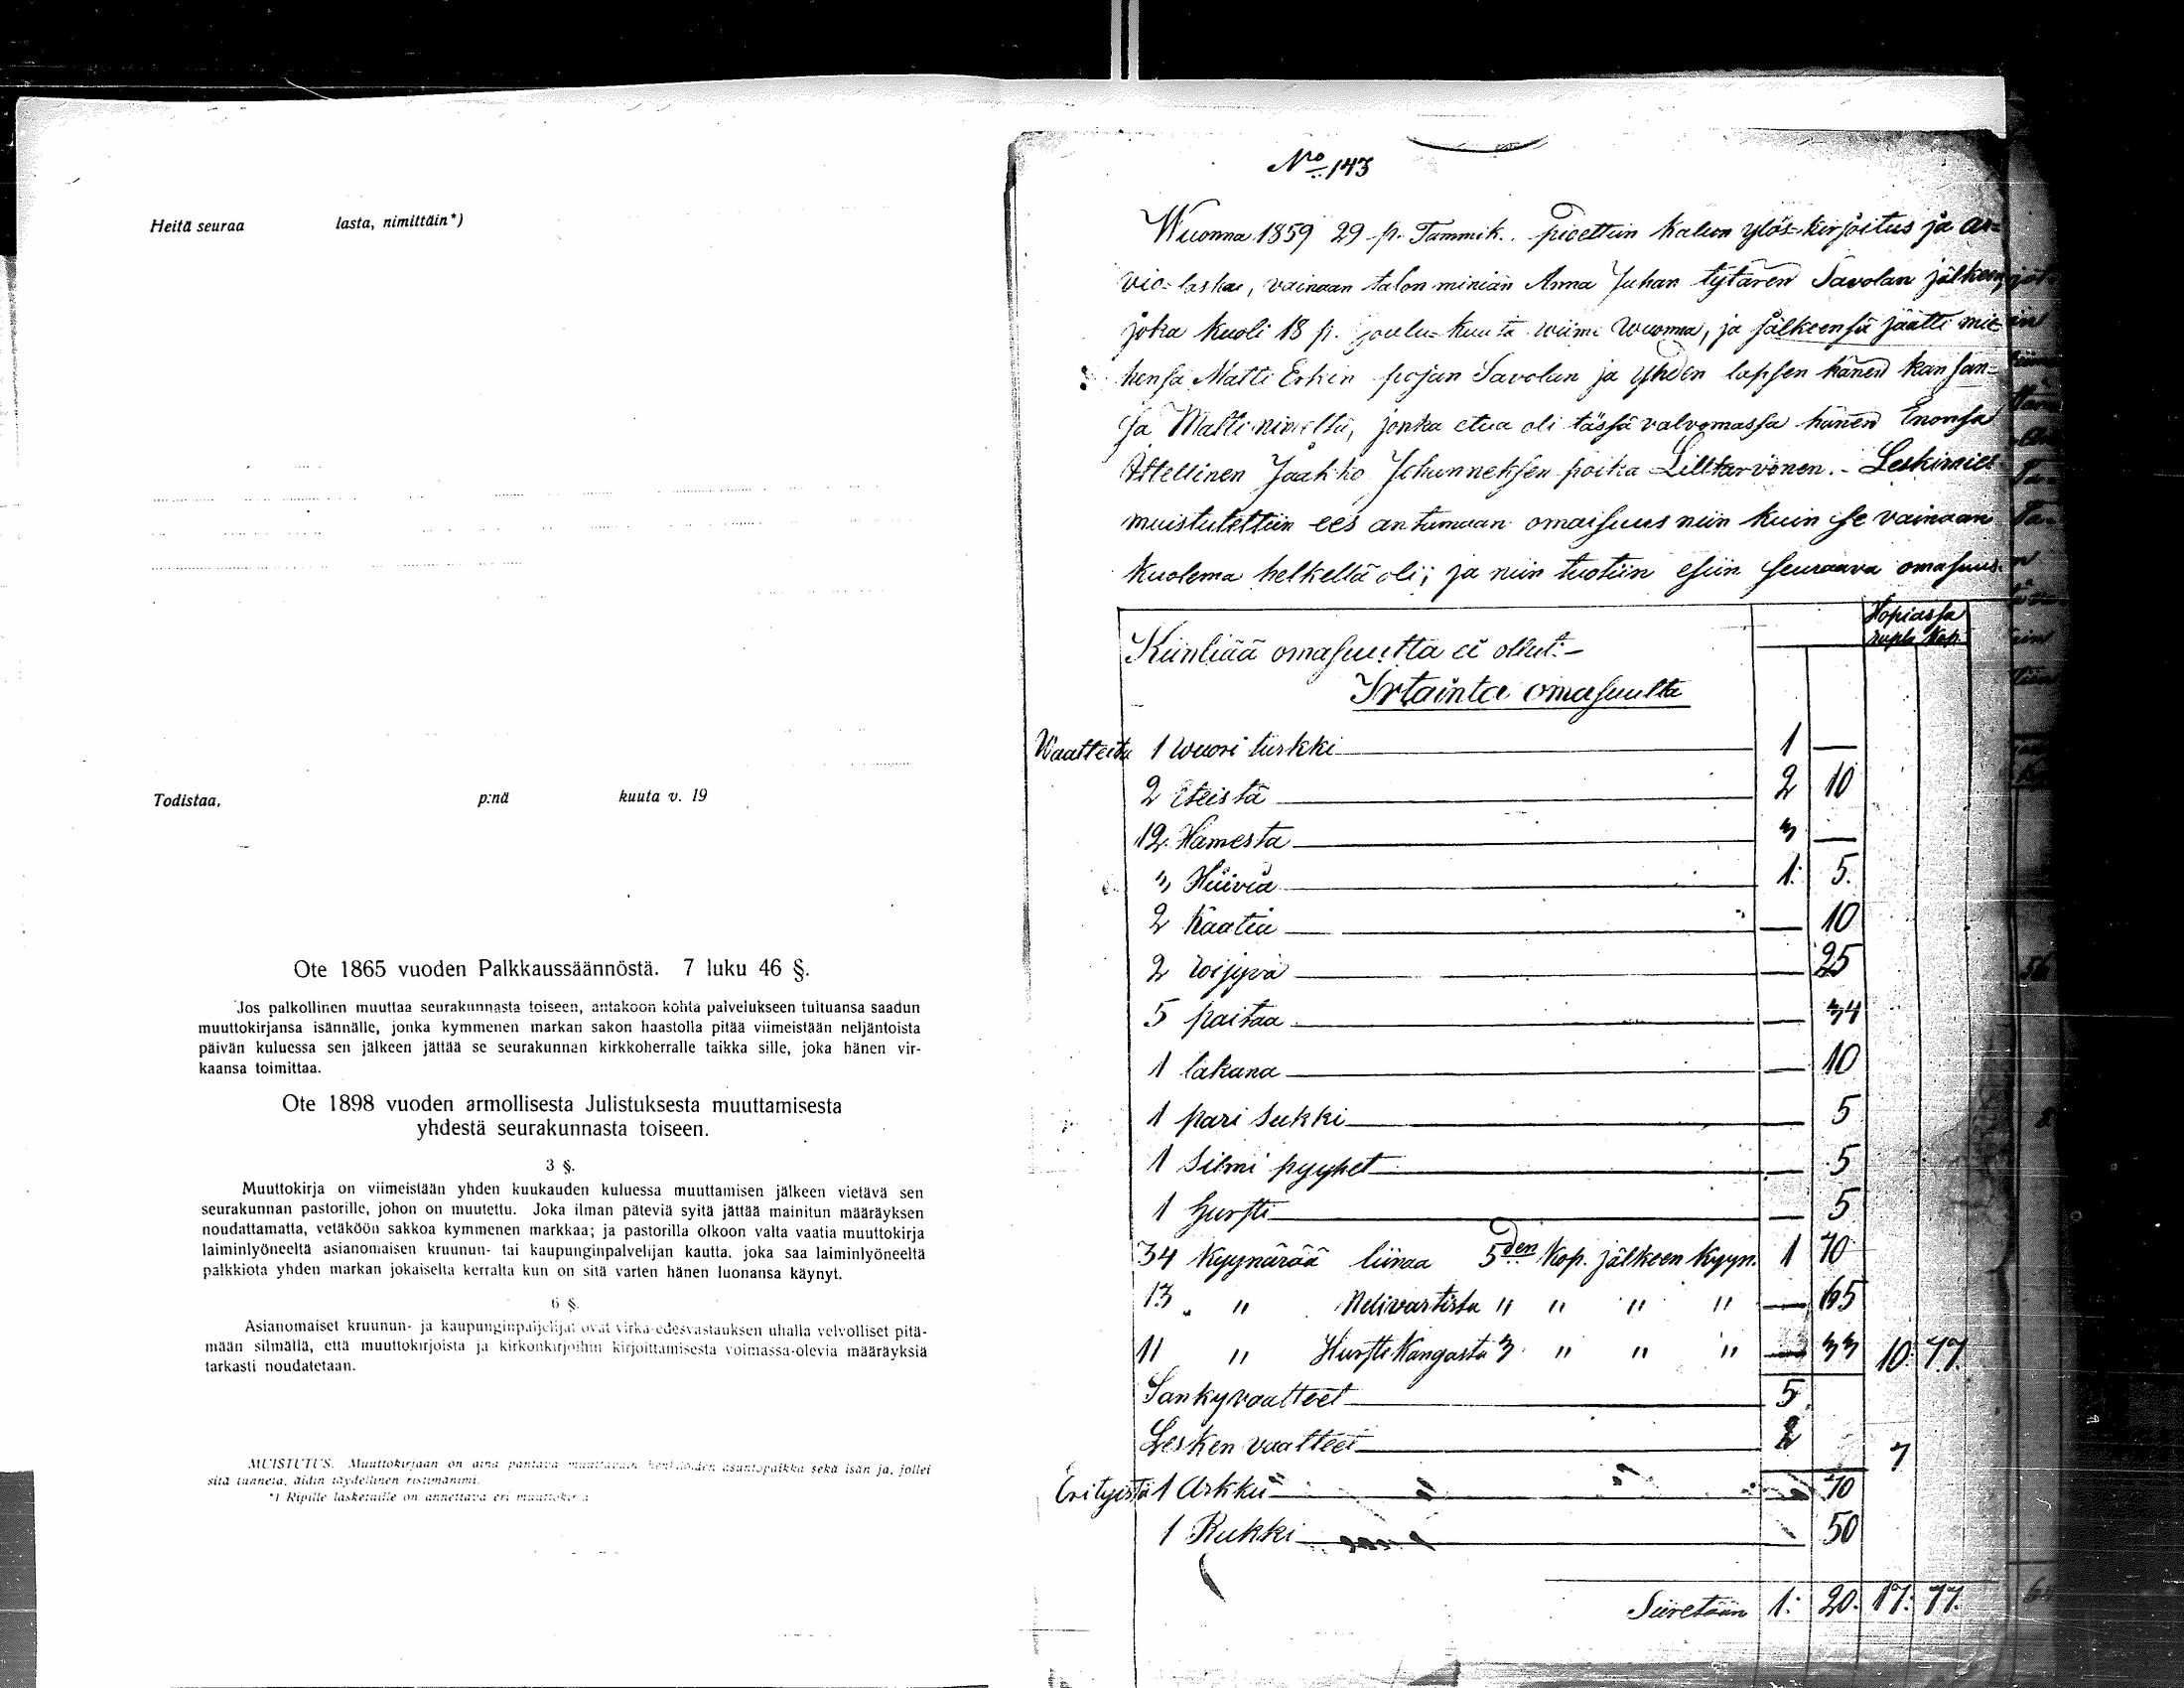 Heitä seuraa lasta, nimittäin*)
Todistaa, p:nä kuuta v. 19
Ote 1865 vuoden Palkkaussäännöstä. 7 luku 46 §.
Jos palkollinen muuttaa seurakunnasta toiseen, antakoon kohta palvelukseen tultuansa saadun
muuttokirjansa isännälle, jonka kymmenen markan sakon haastolla pitää viimeistään neljäntoista
päivän kuluessa sen jälkeen jättää se seurakunnan kirkkoherralle taikka sille, joka hänen vir-
kaansa toimittaa.
Ote 1898 vuoden armollisesta Julistuksesta muuttamisesta
yhdestä seurakunnasta toiseen.
3 §.
Muuttokirja on viimeistään yhden kuukauden kuluessa muuttamisen jälkeen vietävä sen
seurakunnan pastorille, johon on muutettu. Joka ilman päteviä syitä jättää mainitun määräyksen
noudattamatta, vetäköön sakkoa kymmenen markkaa; ja pastorilla olkoon valta vaatia muuttokirja
laiminlyöneeltä asianomaisen kruunun- tai kaupunginpalvelijan kautta, joka saa laiminlyöneeltä
palkkiota yhden markan jokaiselta kerralta kun on sitä varten hänen luonansa käynyt.
6 §.
Asianomaiset kruunun- ja kaupunginpalvelijat ovat virka-edesvastauksen uhalla velvolliset pitä-
mään silmällä, että muuttokirjoista ja kirkonkirjoihin kirjoittamisesta voimassa-olevia määräyksiä
tarkasti noudatetaan.
MUISTUTUS. Muuttokirjaan on aina pantava muuttavain henkilöiden asuntopaikka sekä isän ja, jollei
sitä tunneta, äidin täydellinen ristimänimi.
*) Ripille lasketuille on annettava eri muuttokirja
No 143
Wuonna 1859 29 p. Tammik. pidettiin kalun ylös-kirjoitus ja ar-
vio-lasku, vainaan talon miniän Anna Juhan tytären Savolan jälkeen,
joka kuoli 18 p. joulu-kuuta wiime wuonna, ja jälkeensä jäätti mie-
hensä Matti Erkin pojan Savolan ja yhden lapsen hänen kansan-
sa Matti nimeltä, jonka etua oli tässä valvomassa hänen Enonsa
Itellinen Jaakko Johanneksen poika Lilltarvonen. - Leskimies
muistutettiin ees antamaan omaisuus niin kuin se vainaan
kuolema hetkellä oli; ja niin tuotiin esiin seuraava omasuus.
Hopiassa
rupla Kop.
Kiinliää omasuutta ei ollut.-
Irtainta omasuutta
Waatteita 1 wuori turkki 1 —
2 Eteistä 2 10
12 Hamesta 3 —
3 Hüiviä 1. 5.
2 Kaatia — 10
2 — 25
5 paitaa — 34
1 lakana — 10
1 pari sukki — 5
1 silmi pyyhet — 5
1 hursti — 5
34 Kyynärää liinaa 5den Kop. jälkeen kyyn. 1 70
13 " " Nelivartista " " " " — 65
11 " Hursti Kangasta 3 " " " — 33 10. 77.
Sankyvaatteet 5
Lesken vaatteet 2 7
Erityistä 1 Arkku — 70
1 Rukki 50
Siiretään 1. 20. 17. 77.